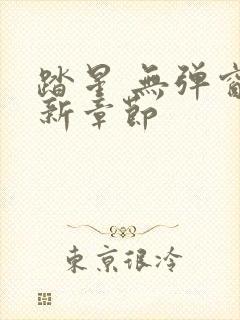 踏星 無弹窗
新章節
東京很冷